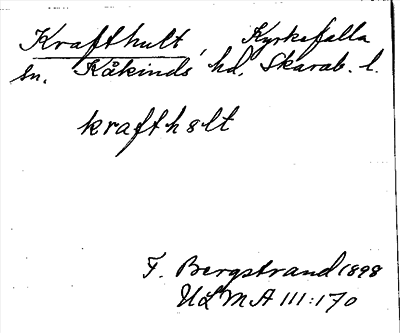 Krafthult, Kyrkefalla
sn. Kåkinds hd, Skarab. l.
kraftholt
F. Bergstrand 1898
ULMA III:170